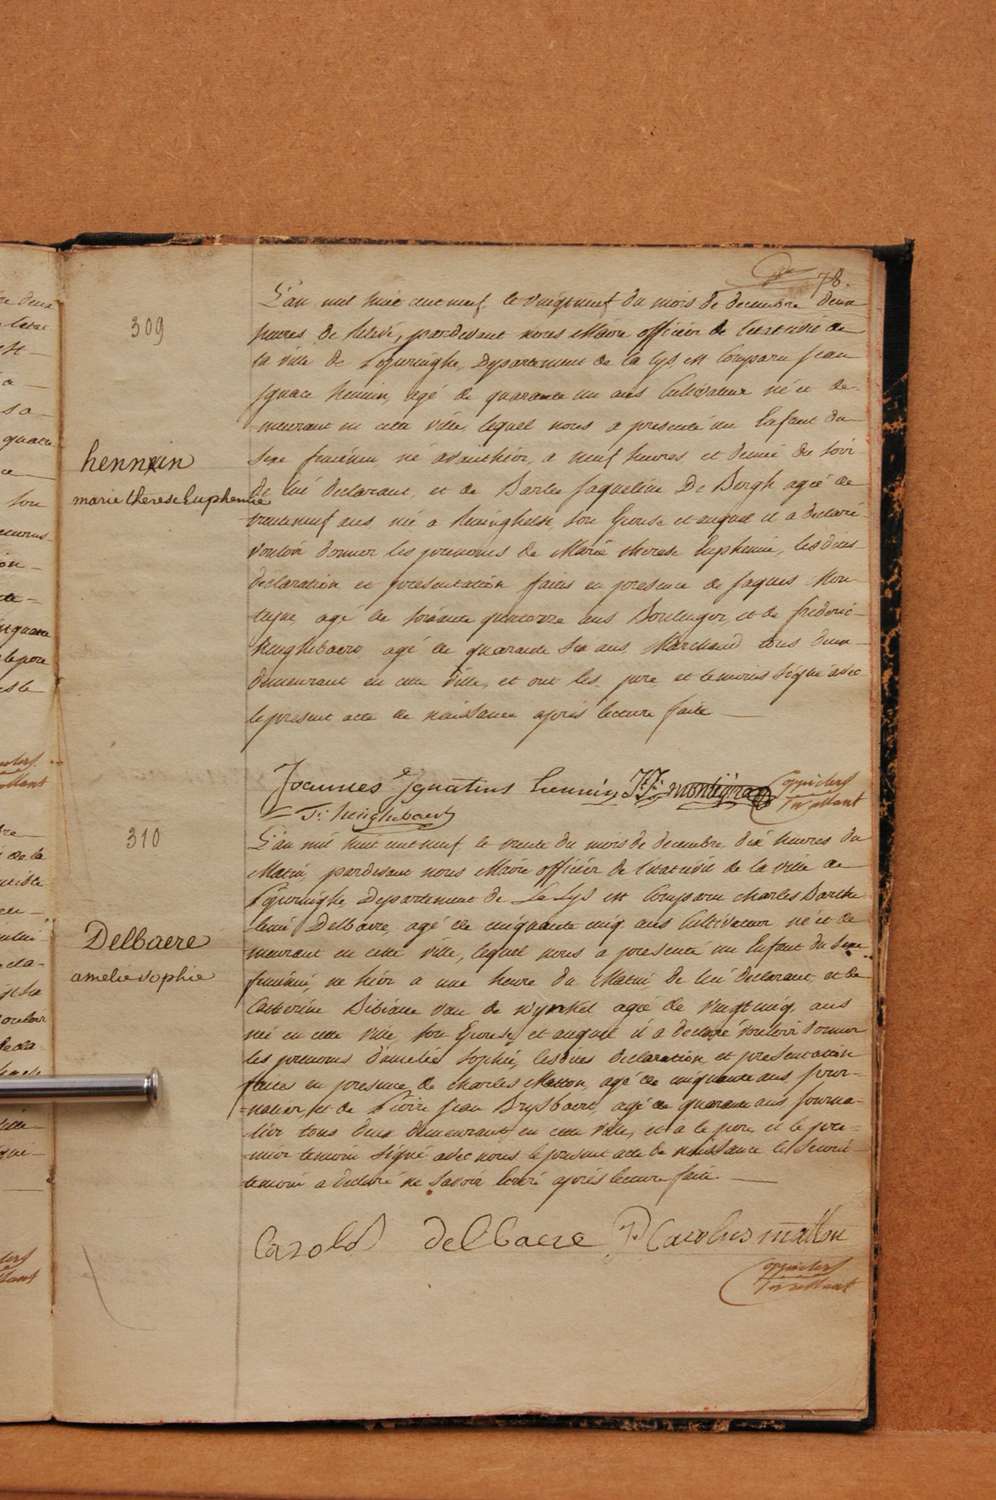 78.
309
L'an mil huit cent neuf le vingt neuf du mois de decembre deux
heures de relevé, pardevant nous Maire officier de l'etat civil de
la ville de Poperinghe, Departement de la Lys est Comparu jean
Ignace hennin, agé de quarante un ans Cultivateur né et de-
meurant en cette ville, lequel nous a presenté un Enfant du
hennin
marie therese Euphemie
Sexe feminin né avanthier, a neuf heures et demie du soir
De lui declarant, et de Barbe jaqueline De Bergh agée de
trenteneuf ans née a son Epouse et auquel il a declaré
vouloir donner les prenoms de Marie therese Euphemie, les dites
declaration et presentation faites en presence de jaques Mon-
tigne agé de soixante quatorze ans Boulenger et de frederic
agé de quarante six ans Marchand tous deux
demeurant en cette Ville, et ont les pere et temoins signé avec
le present acte de naissance après lecture faite —
Joannes Ignatius hennin
310
L'an mil huit cent neuf le trente du mois de decembre dix heures du
Matin, pardevant nous Maire officier de l'etat civil de la ville de
Poperinghe Departement de La Lys est Comparu charles Barthe
lemi Delbaere, agé de cinquante cinq ans Cultivateur né et de
meurant en cette ville, lequel nous a presenté un Enfant du Sexe
Delbaere
amelie sophie
feminin, né hier a une heure du Matin de lui declarant et de
Catherine Bibiane van de agée de vingt cinq ans
née en cette ville, son Epouse, et auquel il a declaré vouloir donner
les prenoms d'amelie Sophie, les dites declaration et presentation
faites en presence de charles Matton, agé de cinquante ans jour-
nalier et de Pierre jean agé de quarante ans journa-
lier tous deux demeurant en cette ville, et a le pere et le pre-
mier temoin signé avec nous le present acte de naissance le second
temoin a declaré ne savoir ecrire après lecture faite —
Carolus Delbaere Carolus matton